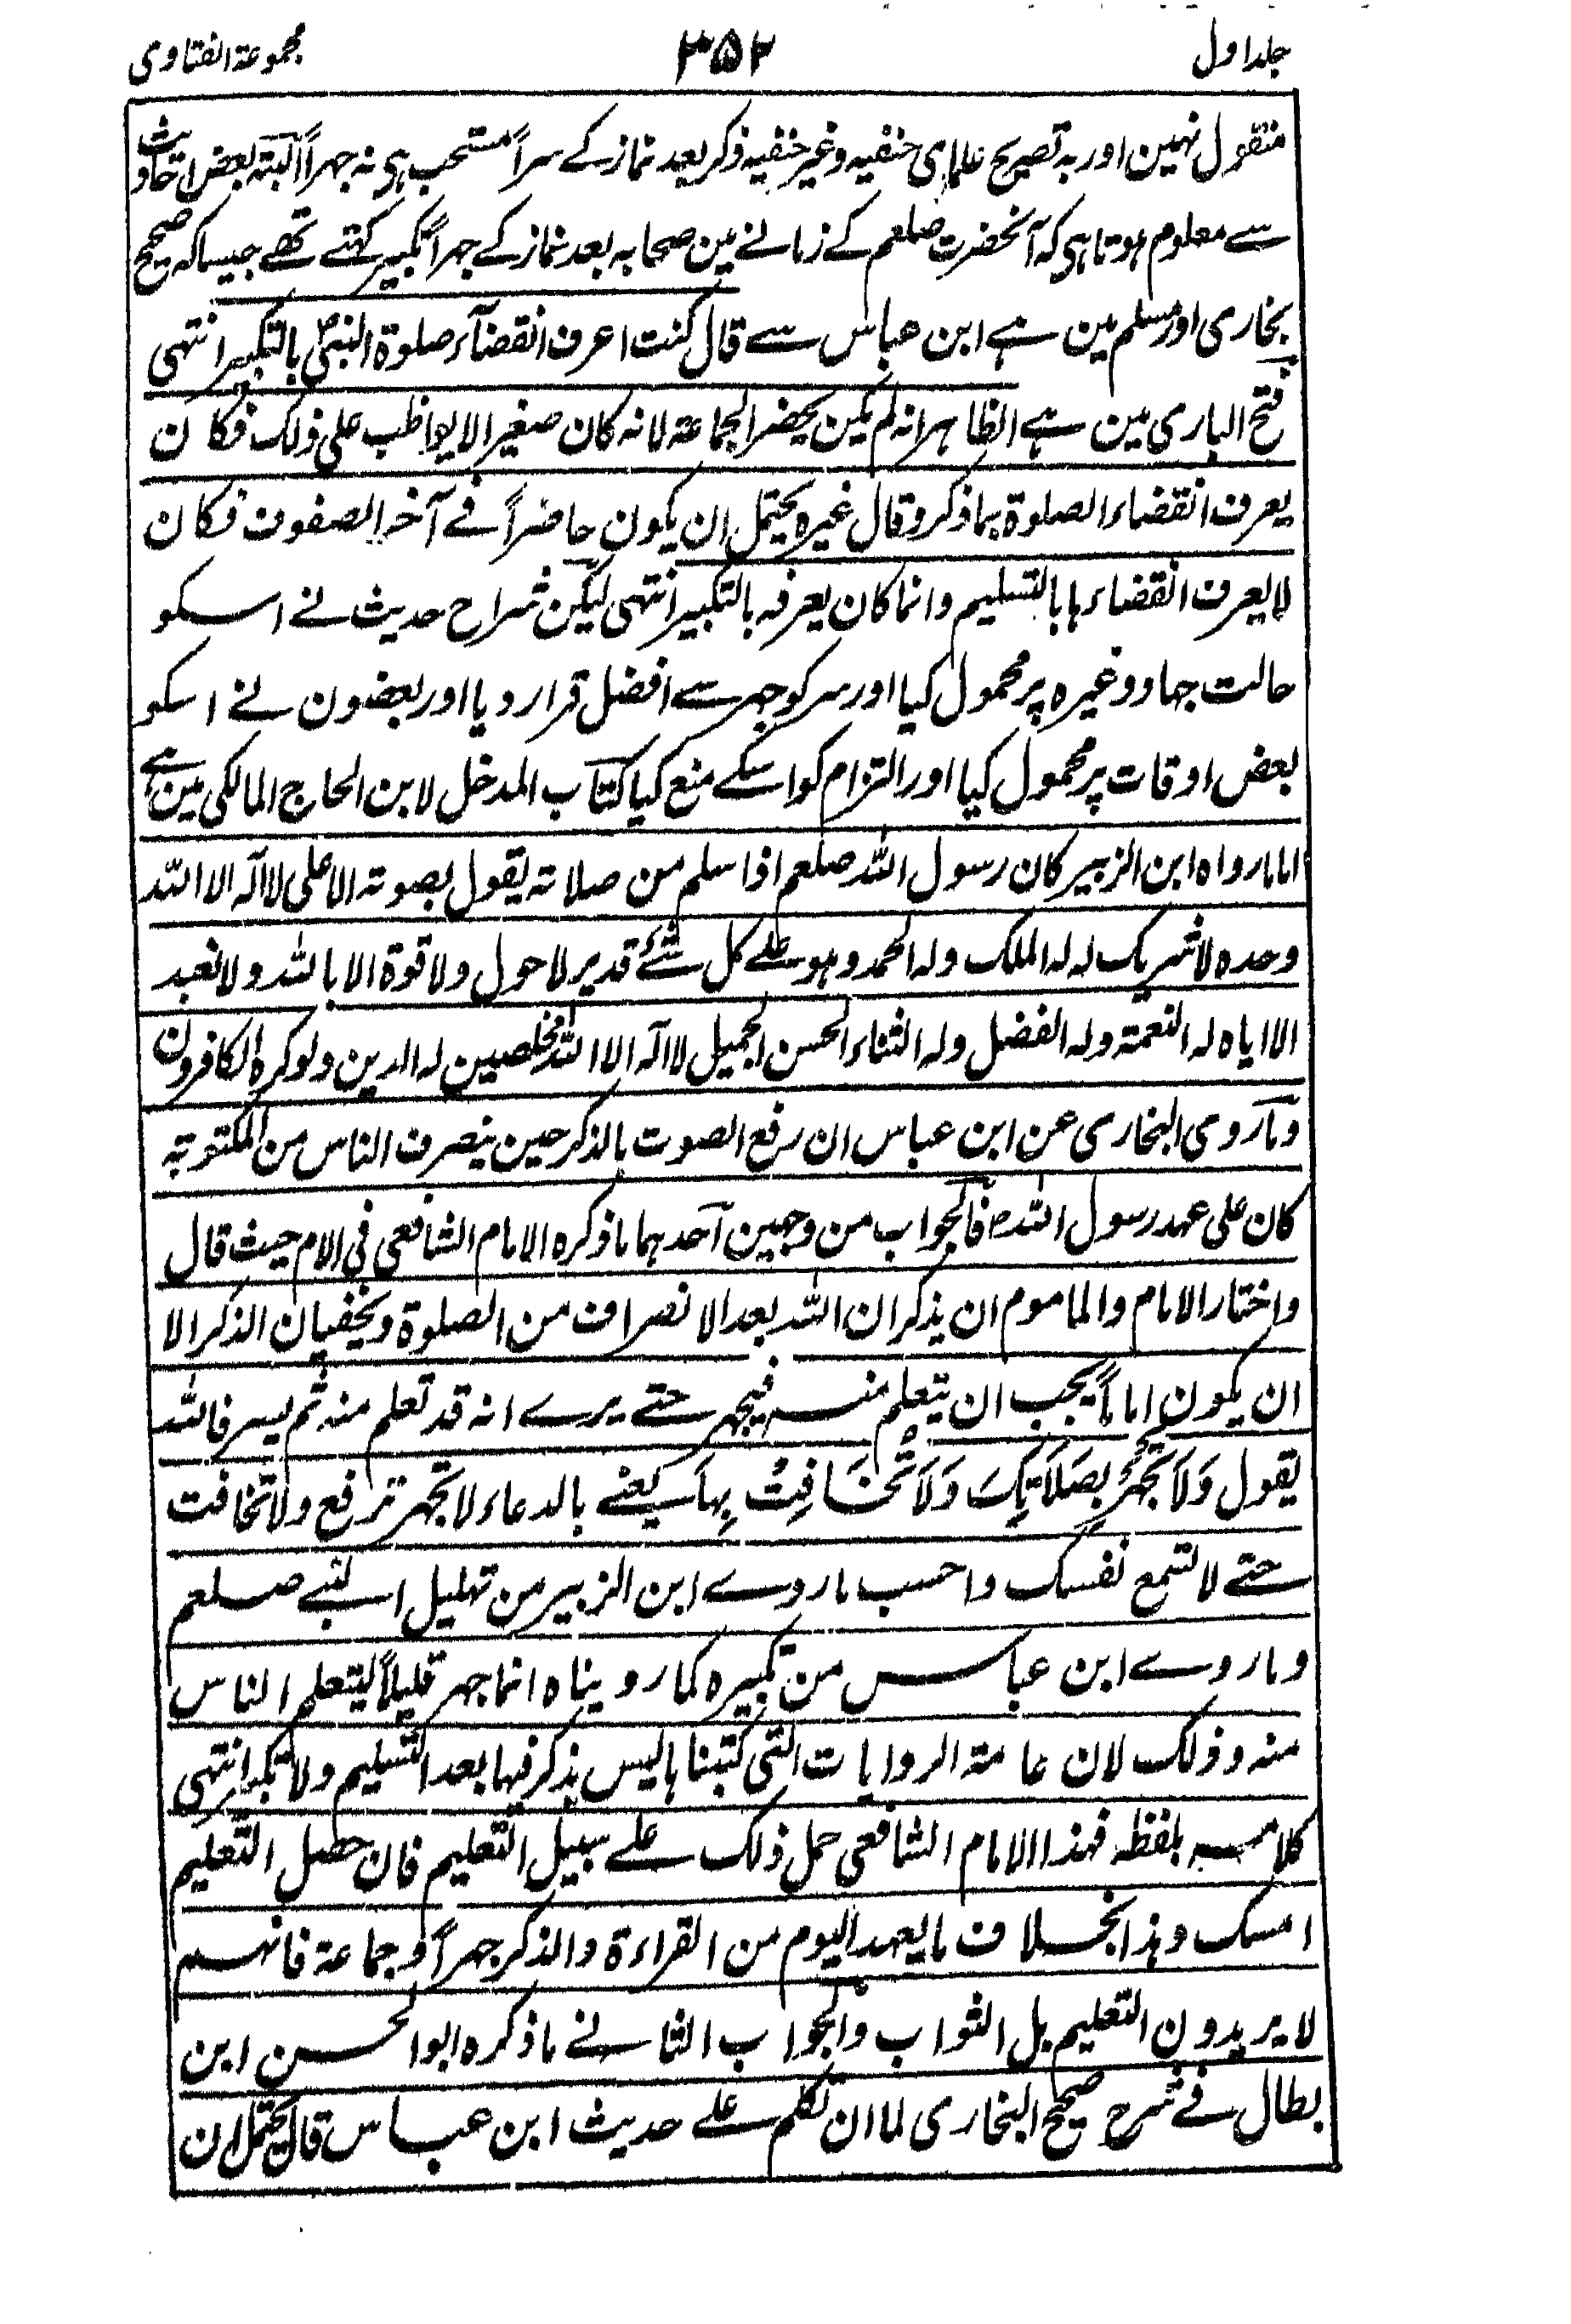 جلد اول ۳۵۲ مجموعۃ الفتاوی
منقول نہین اور بہ تصریح علمای حنفیہ وغیر حنفیہ ذکر بعد نماز کے سراً مستحب ہی نہ جہراً البتہ بعض احادیث
سے معلوم ہوتا ہی کہ آنحضرت صلعم کے زمانے مین صحابہ بعد نماز کے جہراً تکبیر کہتے تھے جیسا کہ صحیح
بخاری اور مسلم مین ہے ابن عباس سے قال کنت اعرف انقضآء صلوۃ النبیؐ بالتکبیر انتہی
فتح الباری مین ہے الظاہر انہ لم یکن یحضر الجماعۃ لانہ کان صغیرا لا یواظب علی ذلک فکان
یعرف انقضاء الصلوۃ بما ذکر وقال غیرہ یحتمل ان یکون حاضراً فے آخر الصفوف فکان
لا یعرف انقضاءہا بالتسلیم وانما کان یعرفہ بالتکبیر انتہی لیکن شراح حدیث نے اسکو
حالت جہاد وغیرہ پر محمول کیا اور سر کو جہر سے افضل قرار دیا اور بعضون نے اسکو
بعض اوقات پر محمول کیا اور التزام کو اسکے منع کیا کتاب المدخل لابن الحاج المالکی مین ہے
اما ما رواہ ابن الزبیر کان رسول اللہ صلعم اذا سلم من صلاتہ یقول بصوتہ الاعلی لا الہ الا اللہ
وحدہ لا شریک لہ لہ الملک ولہ الحمد وہو علے کل شئ قدیر لا حول ولا قوۃ الا باللہ ولا نعبد
الا ایاہ لہ النعمۃ ولہ الفضل ولہ الثناء الحسن الجمیل لا الہ الا اللہ مخلصین لہ الدین ولو کرہ الکافرون
وما روی البخاری عن ابن عباس ان رفع الصوت بالذکر حین ینصرف الناس من المکتوبۃ
کان علی عہد رسول اللہؐ فالجواب من وجہین احدہما ما ذکرہ الامام الشافعی فی الام حیث قال
واختار الامام والماموم ان یذکران اللہ بعد الانصراف من الصلوۃ ویخفیان الذکر الا
ان یکون اماماً یجب ان یتعلم منہ فیجہر حتے یرے انہ قد تعلم منہ ثم یسر فاللہ
یقول وَلَا تَجْہَرْ بِصَلَاتِکَ وَلَا تُخَافِتْ بِہَا یعنے بالدعاء لا تجہر ترفع ولا تخافت
حتے لا تسمع نفسک واحسب ما روے ابن الزبیر من تہلیل النبے صلعم
وما روے ابن عباس من تکبیرہ کما رویناہ انما جہر قلیلاً لیتعلم الناس
منہ وذلک لان عامۃ الروایات التی کتبناہا لیس یذکر فیہا بعد التسلیم ولا تکبیر انتہی
کلامہ بلفظہ فہذا الامام الشافعی حمل ذلک علے سبیل التعلیم فان حصل التعلیم
امسک وہذا بخلاف ما یعہد الیوم من القراءۃ والذکر جہراً وجماعۃ فانہم
لا یریدون التعلیم بل الثواب والجواب الثانے ما ذکرہ ابو الحسن ابن
بطال فے شرح صحیح البخاری لما ان تکلم علے حدیث ابن عباس قال یحتمل ان